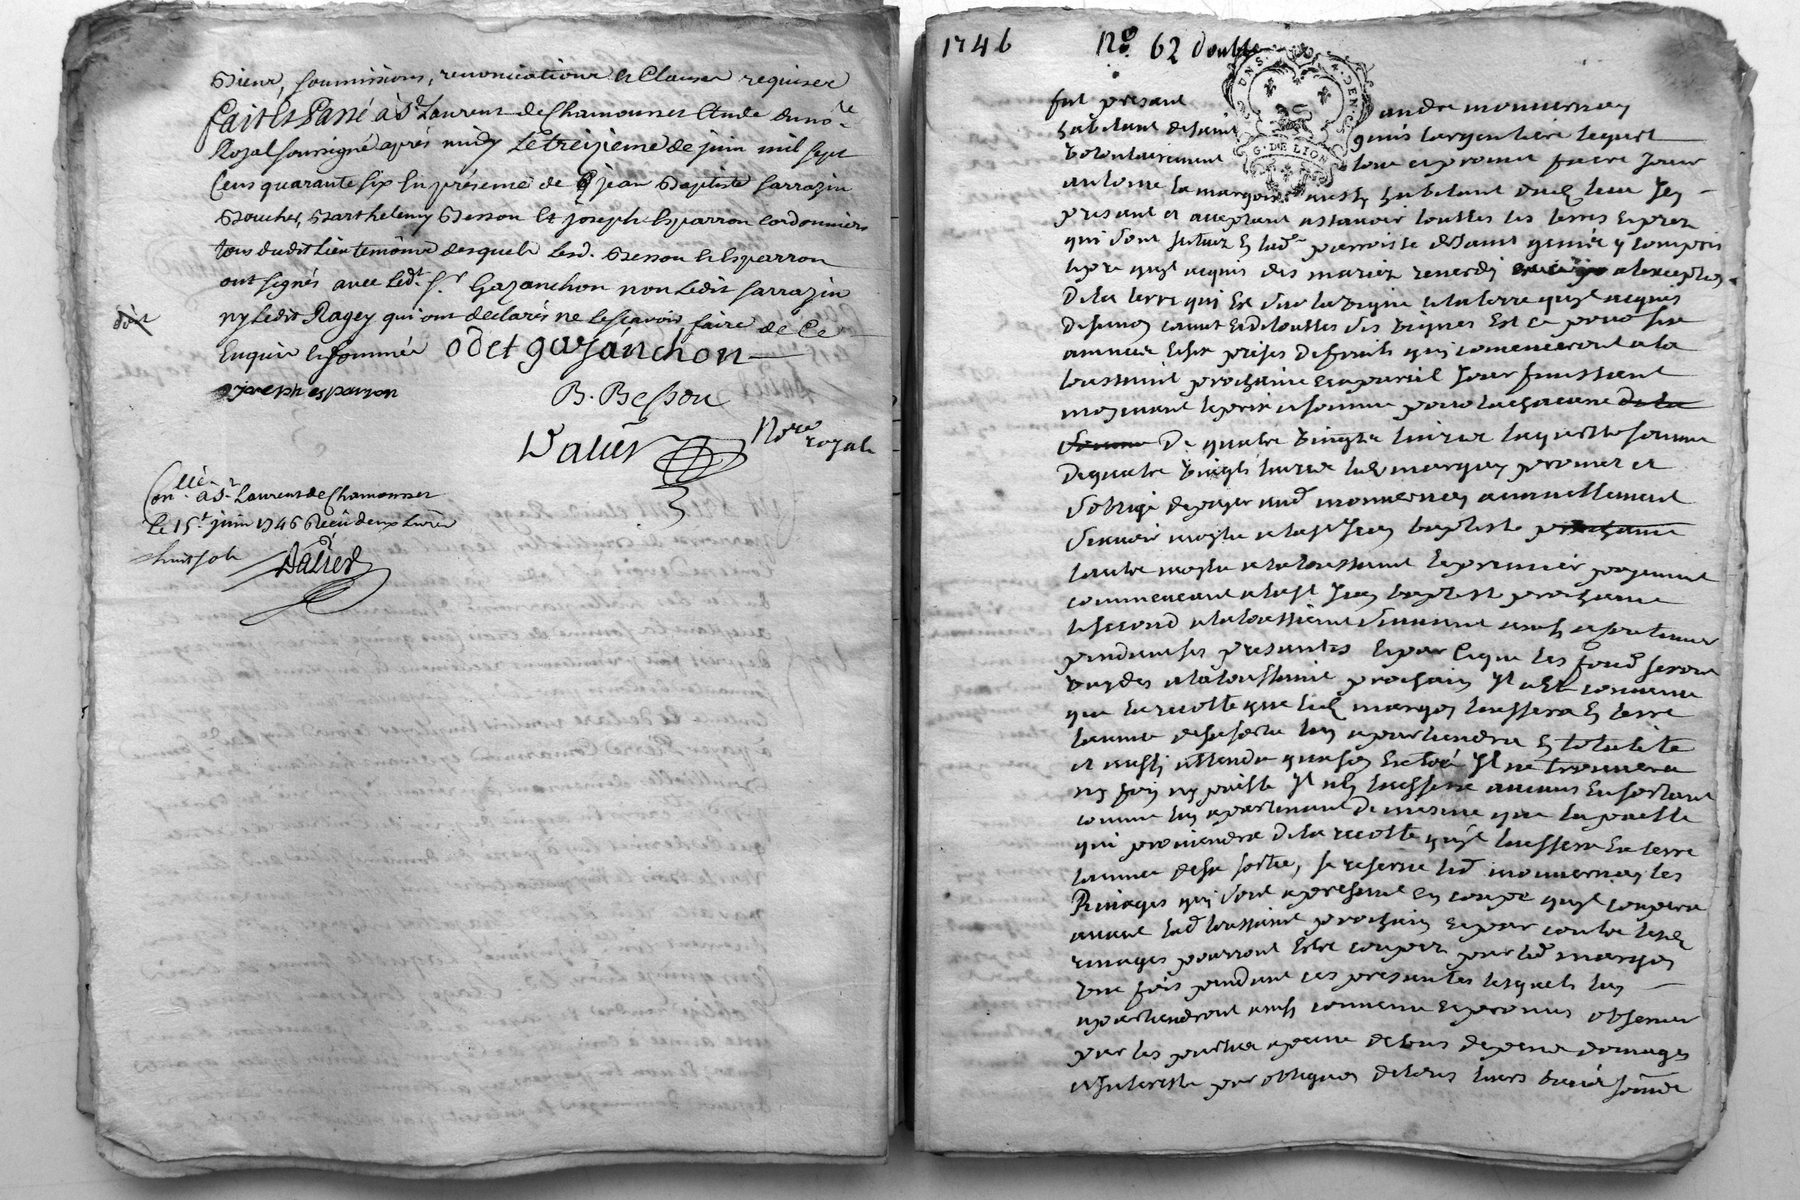 Biens, soumissions, renonciations et Clauses requises
fait et Passé à St Laurent de Chamousset Etude du nore
Royal soussigné après midy Le treizieme de juin mil sept
Cens quarante six En présence de jean Baptiste sarrazin
Boucher, Barthelemy Besson et joseph Esparron cordonniers
tous dudit Lieu temoins desquels Lesd. Besson et Esparron
ont signés avec Ledt. Sr. Gazanchon non Ledit sarrazin
ny Ledit Ragey qui ont déclarés ne le scavoir faire de Ce
Enquis et sommés odet gazanchon
joseph esparron
B. Besson
Dalier Nore royale
Conllé. à St. Laurent de Chamousset
Le 15e. juin 1746 Reçu deux Livres
huit sols
Dalier
1746 No 62 double
G. DE LION
fut presant andré mouvernay
habitant de saint genis largentiere lequel
volontairement loue et promet faire jouir
antoine la margois aussi habitant dud lieu icy
presant et acceptant assavoir touttes les terres et prez
qui sont situez en lad. parroisse de saint genis y compris
le pré quil acquis des mariez renerdy a lexception
de la terre qui est sur la vigne et la terre quil acquis
et de touttes les vignes est ce pour six
années et six prises de fruits qui comenceront a la
toussaint prochaine et a pareil jour finissant
moyenant le prix et somme pour chacune de la
somme De quatre vingts livres laquelle somme
de quatre vingts livres led margoy promet et
soblige de payer aud mouvernay annuellement
scavoir moytie a la st jean baptiste prochaine
lautre moytie a la toussaint le premier payement
commencant a la st jean baptiste prochaine
le second a la toussaint suivant ainsi a continuer
pendant les presantes et par ce que les fonds seront
vuydes a la toussaint prochain il a été convenu
que la recolte que led margoy laissera en terre
lannée de sa sortie luy apartiendra en totalité
et aussi attendu qua son entrée il ne trouvera
ny foin ny paille il nen laissera aucuns en sortant
comme luy apartenant de mesme que la paille
qui proviendra de la recolte quil laissera en terre
lannée de sa sortie, se reserve led mouvernay les
Ramages qui sont a present en coupe quil coupera
avant lad toussaint prochain et par contre lesd
ramages pourront estre coupez par led margoy
une fois pendant ces presantes lesquels luy
apartiendront ainsi convenu et promis observer
par les parties a peine de tous depens domages
et interests par obligation de tous leurs biens soumis